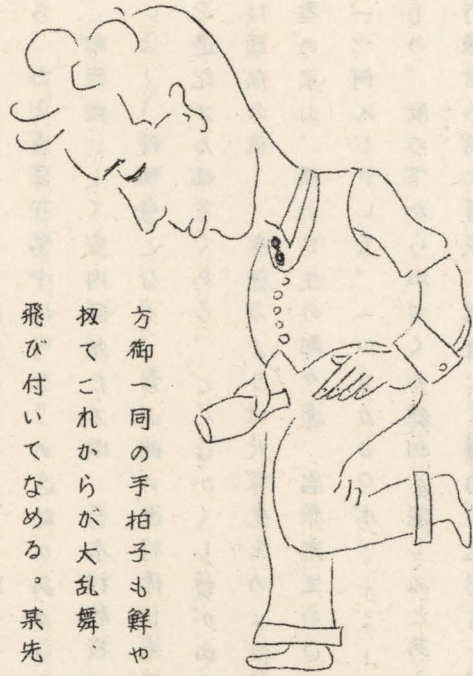 方御一同の手拍子も鮮や
扨てこれからが大乱舞、
飛び付いてなめる。某先